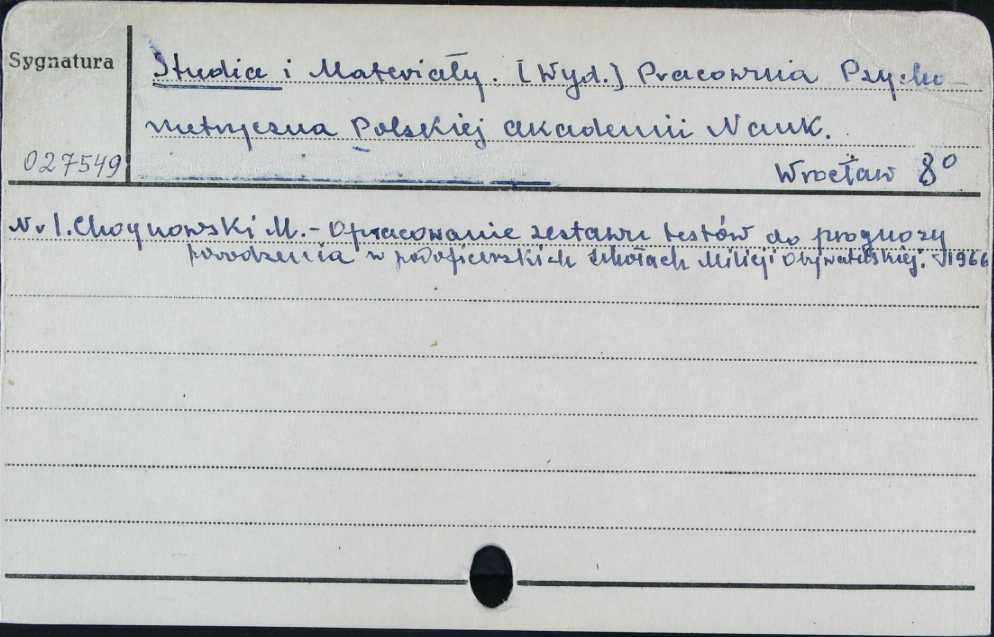 Sygnatura
Studia i Materiały. [Wyd.] Pracownia Psycho-
metryczna Polskiej Akademii Nauk.
027549
Wrocław 8°
Nr 1. Choynowski M. - Opracowanie zestawu testów do prognozy
powodzenia w podoficerskich szkołach Milicji Obywatelskiej. 1966